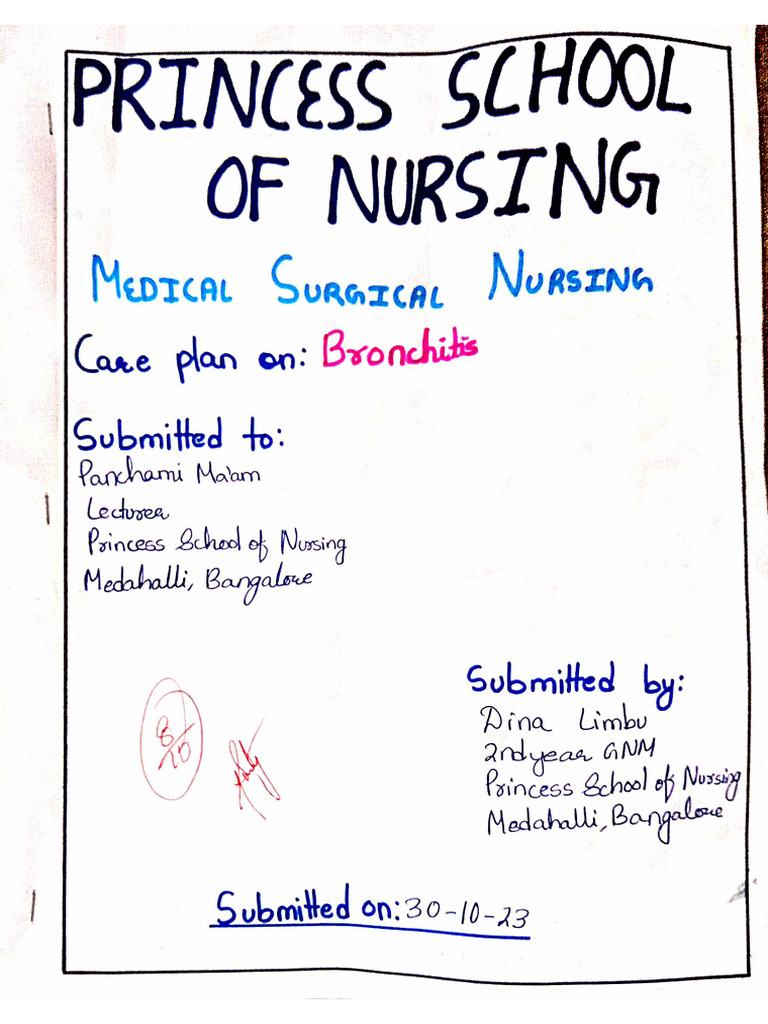 PRINCESS SCHOOL
OF NURSING
MEDICAL SURGICAL NURSING
Care plan on: Bronchitis
Submitted to:
Panchami Ma'am
Lecturer
Princess School of Nursing
Medahalli, Bangalore
Submitted by:
Dina Limbu
2nd year GNM
Princess School of Nursing
Medahalli, Bangalore
Submitted on: 30-10-23